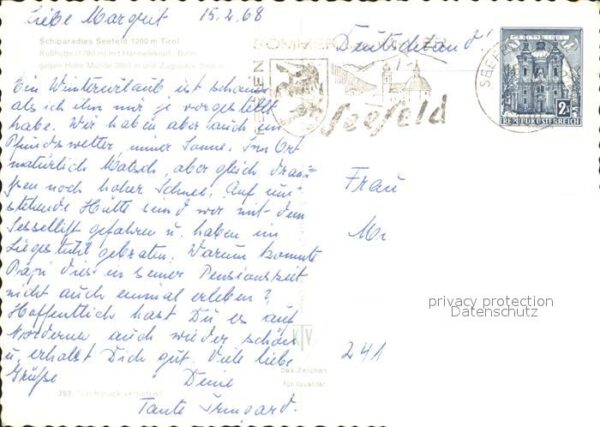 Liebe Margret 15.2.68
Schiparadies Seefeld 1200 m Tirol
Ein Winterurlaub ist schöner
als ich ihn mir je vorgestellt
habe. Wir haben aber auch ein
Pfundswetter, immer Sonne. Im Ort
natürlich Matsch, aber gleich drau-
ßen noch hoher Schnee. Auf um-
stehende Hütte sind wir mit dem
Sessellift gefahren u. haben im
Liegestuhl gebraten. Warum konnte
Papi dies in seiner Pensionszeit
nicht auch einmal erleben?
Hoffentlich hast Du es auf
Norderney auch wieder schön
u. erholst Dich gut. Viele liebe
Grüße Deine
Tante Irmgard.
Deutschland
SOMMER
Seefeld
SEEF
2S
REPUBLIK ÖSTERREICH
Frau
241
privacy protection
Datenschutz
Das Zeichen
für Qualität